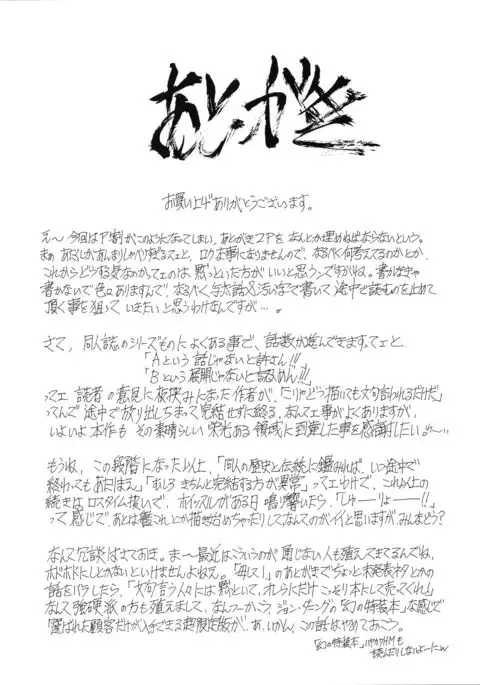 あとがき
お買い上げありがとうございます。
え～今回はア割がこのようになってしまい、あとがき2Pをなんとか埋めねばならないという。
まぁあとがきがあんまりしゃべりすぎるってェと、ロクな事になりませんので、なるべく何考えてるのかとか、
これからどうする気なのかってェのは、黙っといた方がいいと思うんですがね。書かなきゃ
書かないで色々ありますんで、なるべく与太話&汚い字で書いて途中で読むのを止めて
頂く事を狙っていきたいと思うわけなんですが…。
さて、同人誌のシリーズものによくある事で、話数が進んできますってェと、
「Aという話じゃないと許さん!!!」
「Bという展開じゃないと認めん!!!」
ってェ読者の意見に板挟みになった作者が、「こりゃどう描いても文句言われるだけだ」
ってんで途中で放り出しちまって完結せずに終る、なんてェ事がよくありますが、
いよいよ本作もその素晴らしい栄光ある領域に到達した事を感謝したい。
もうね、この段階になったら仕、「同人の歴史と伝統に鑑みれば、いつ途中で
終わってもあたりまえ」「むしろきちんと完結する方が異常」ってェわけで、これ以上の
続きはロスタイム扱いで、ホイッスルがある日鳴り響いたら、「しゅーりょー!!」
って感じで、あとは艦これとか描き始めちゃったりしてなんてのがイイと思いますが、みんなどう?
なんて冗談はさておき。ま～最近はこういうのが通じない人も殖えてきてるんでね、
ホドホドにしとかないといけませんよねえ。「母って!」のあとがきでちょっと未発表ネタとかの
話をバラしたら、「文句言う人々には黙といて、オレらにだけこっそり本にして売ってくれ」
なんて強硬派の方も殖えまして、なんつーかハウ、ジョン・ダニングの「幻の特装本」な感じで
「選ばれた顧客だけが入手できる超限定版が、あ、いかん、この話はやめておこう。
「幻の特装本」ハヤカワHMも
読んだりしないよーにw